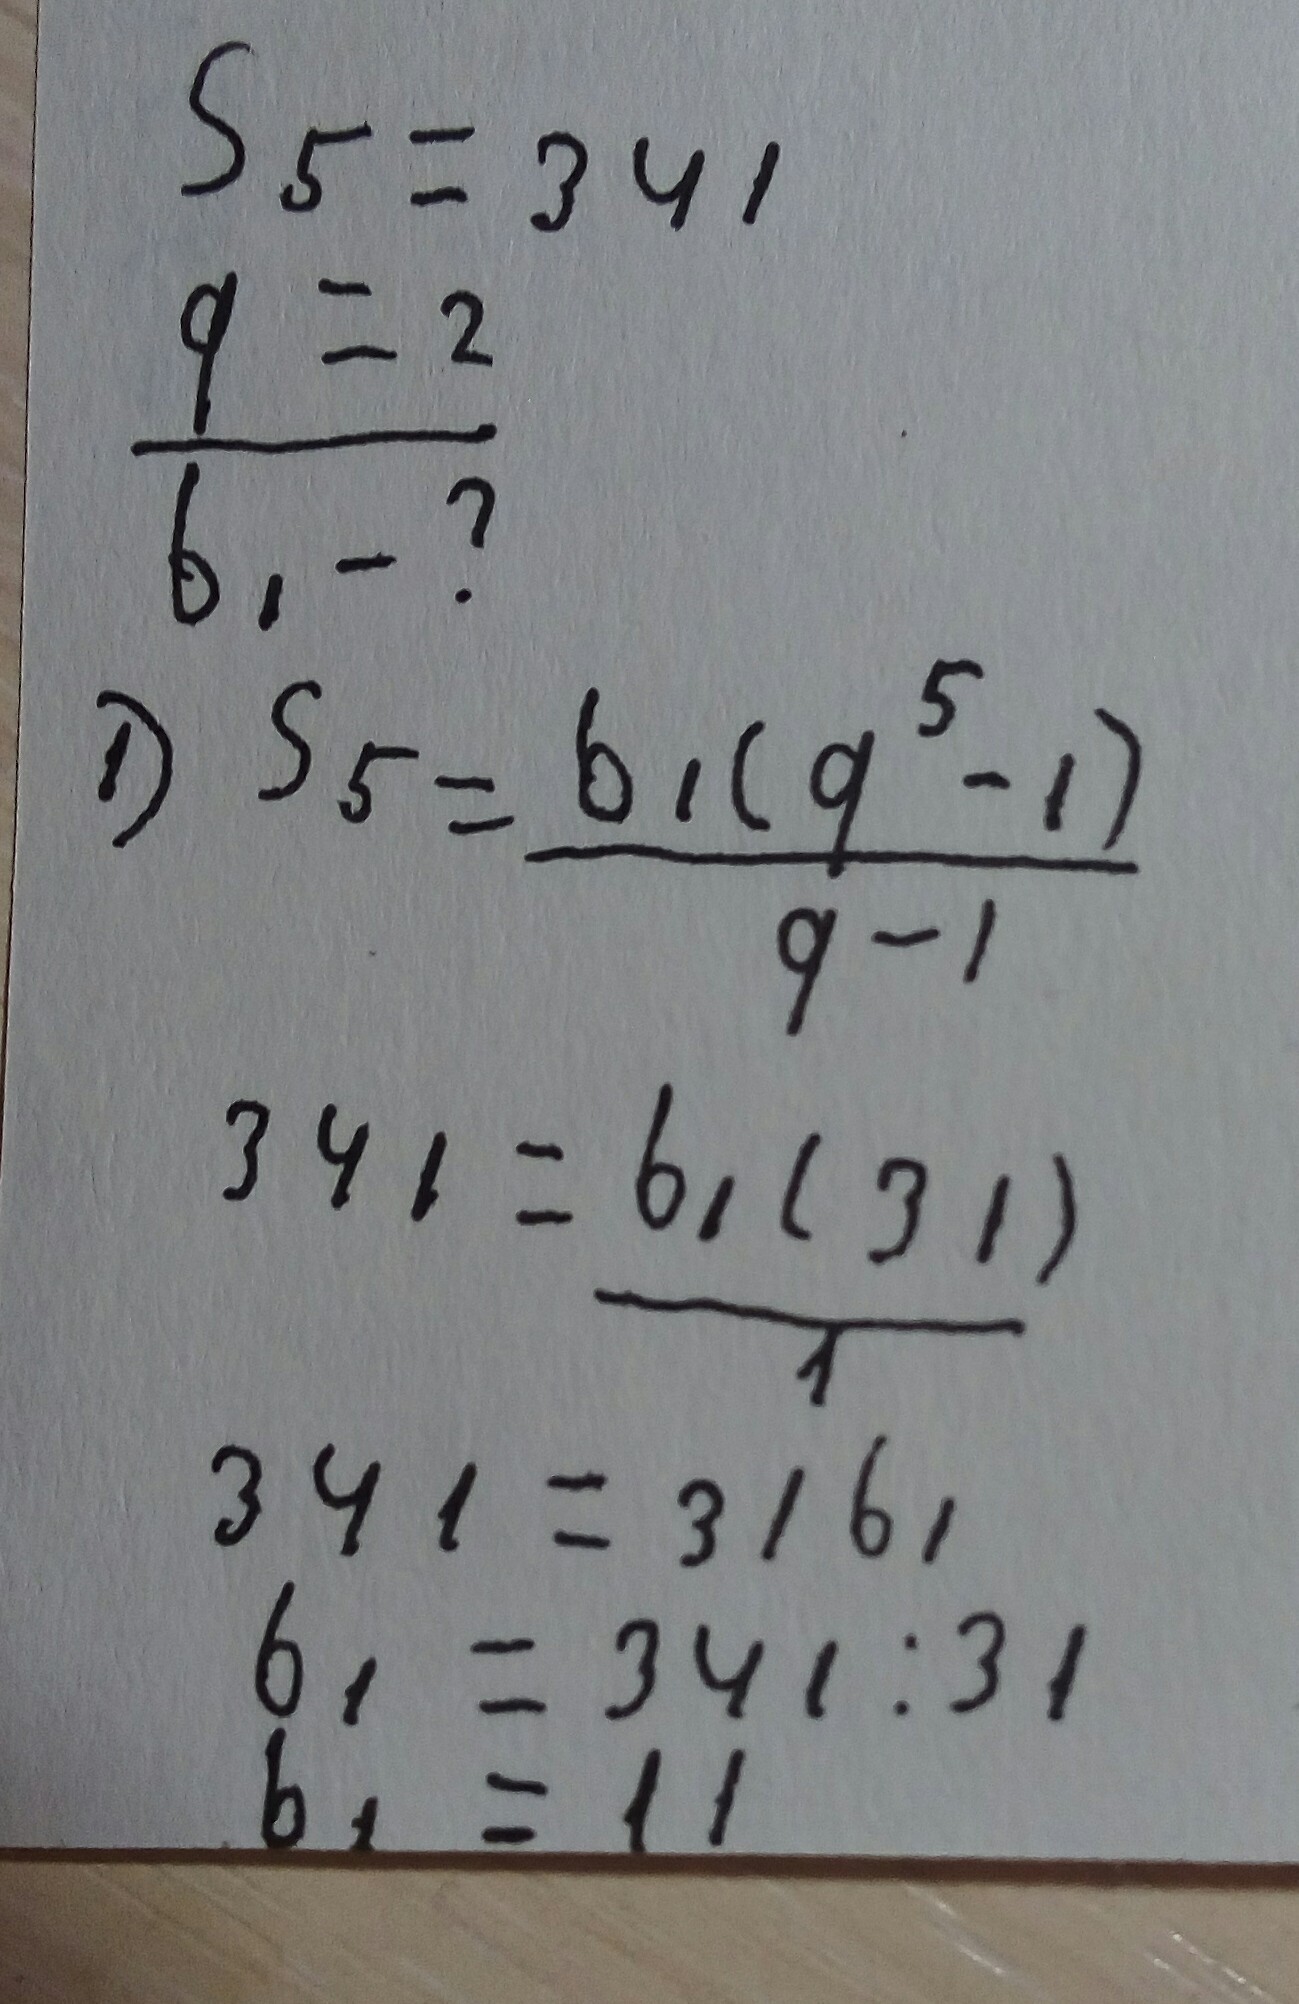 S₅ = 341
q = 2
b₁ - ?
1) S₅ = b₁(q⁵ - 1)
q - 1
341 = b₁(31)
1
341 = 31b₁
b₁ = 341 : 31
b₁ = 11